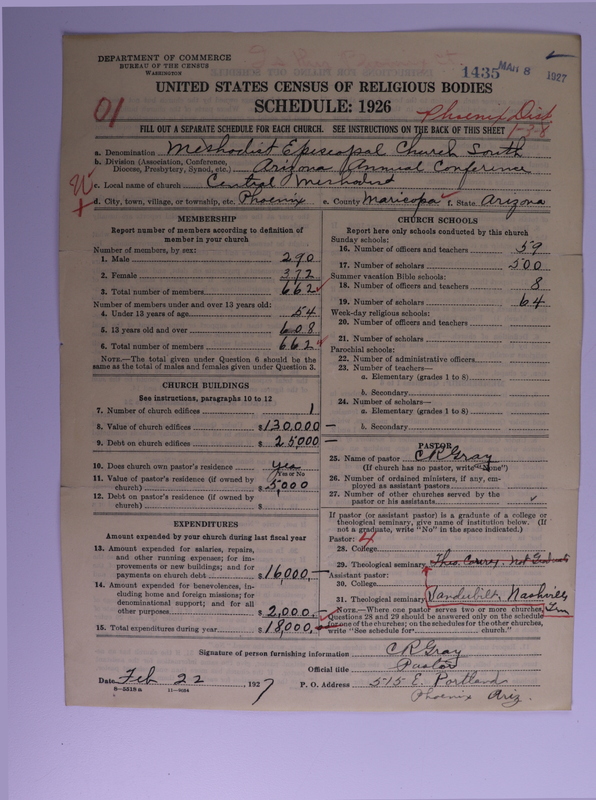 DEPARTMENT OF COMMERCE
BUREAU OF THE CENSUS
WASHINGTON
1435 MAR 8 1927
UNITED STATES CENSUS OF RELIGIOUS BODIES
SCHEDULE: 1926
01
Phoenix Dist
1-3-8
FILL OUT A SEPARATE SCHEDULE FOR EACH CHURCH. SEE INSTRUCTIONS ON THE BACK OF THIS SHEET
a. Denomination Methodist Episcopal Church South
b. Division (Association, Conference, Diocese, Presbytery, Synod, etc.) Arizona Annual Conference
c. Local name of church Central Methodist
d. City, town, village, or township, etc. Phoenix e. County Maricopa f. State Arizona
MEMBERSHIP
Report number of members according to definition of
member in your church
Number of members, by sex:
1. Male 290
2. Female 372
3. Total number of members 662
Number of members under and over 13 years old:
4. Under 13 years of age 54
5. 13 years old and over 608
6. Total number of members 662
NOTE.—The total given under Question 6 should be the
same as the total of males and females given under Question 3.
CHURCH BUILDINGS
See instructions, paragraphs 10 to 12
7. Number of church edifices 1
8. Value of church edifices $130,000
9. Debt on church edifices $25,000
10. Does church own pastor's residence? yes
(Yes or No)
11. Value of pastor's residence (if owned by
church) $5,000
12. Debt on pastor's residence (if owned by
church) $
EXPENDITURES
Amount expended by your church during last fiscal year
13. Amount expended for salaries, repairs,
and other running expenses; for im-
provements or new buildings; and for
payments on church debt $16,000
14. Amount expended for benevolences, in-
cluding home and foreign missions; for
denominational support; and for all
other purposes $2,000
15. Total expenditures during year $18,000
CHURCH SCHOOLS
Report here only schools conducted by this church
Sunday schools:
16. Number of officers and teachers 59
17. Number of scholars 500
Summer vacation Bible schools:
18. Number of officers and teachers 8
19. Number of scholars 64
Week-day religious schools:
20. Number of officers and teachers
21. Number of scholars
Parochial schools:
22. Number of administrative officers
23. Number of teachers—
a. Elementary (grades 1 to 8)
b. Secondary
24. Number of scholars—
a. Elementary (grades 1 to 8)
b. Secondary
PASTOR
25. Name of pastor C R Gray
(If church has no pastor, write "None")
26. Number of ordained ministers, if any, em-
ployed as assistant pastors
27. Number of other churches served by the
pastor or his assistants
If pastor (or assistant pastor) is a graduate of a college or
theological seminary, give name of institution below. (If
not a graduate, write "No" in the space indicated.)
Pastor: 4
28. College
29. Theological seminary Theo. Course, not Graduate
Assistant pastor:
30. College
31. Theological seminary Vanderbilt, Nashville
Tenn
NOTE.—Where one pastor serves two or more churches,
Questions 28 and 29 should be answered only on the schedule
for one of the churches; on the schedules for the other churches,
write "See schedule for church."
Signature of person furnishing information C R Gray
Official title Pastor
Date Feb 22, 1927 P. O. Address 515 E. Portland
8-5518a 11-9084
Phoenix Ariz.